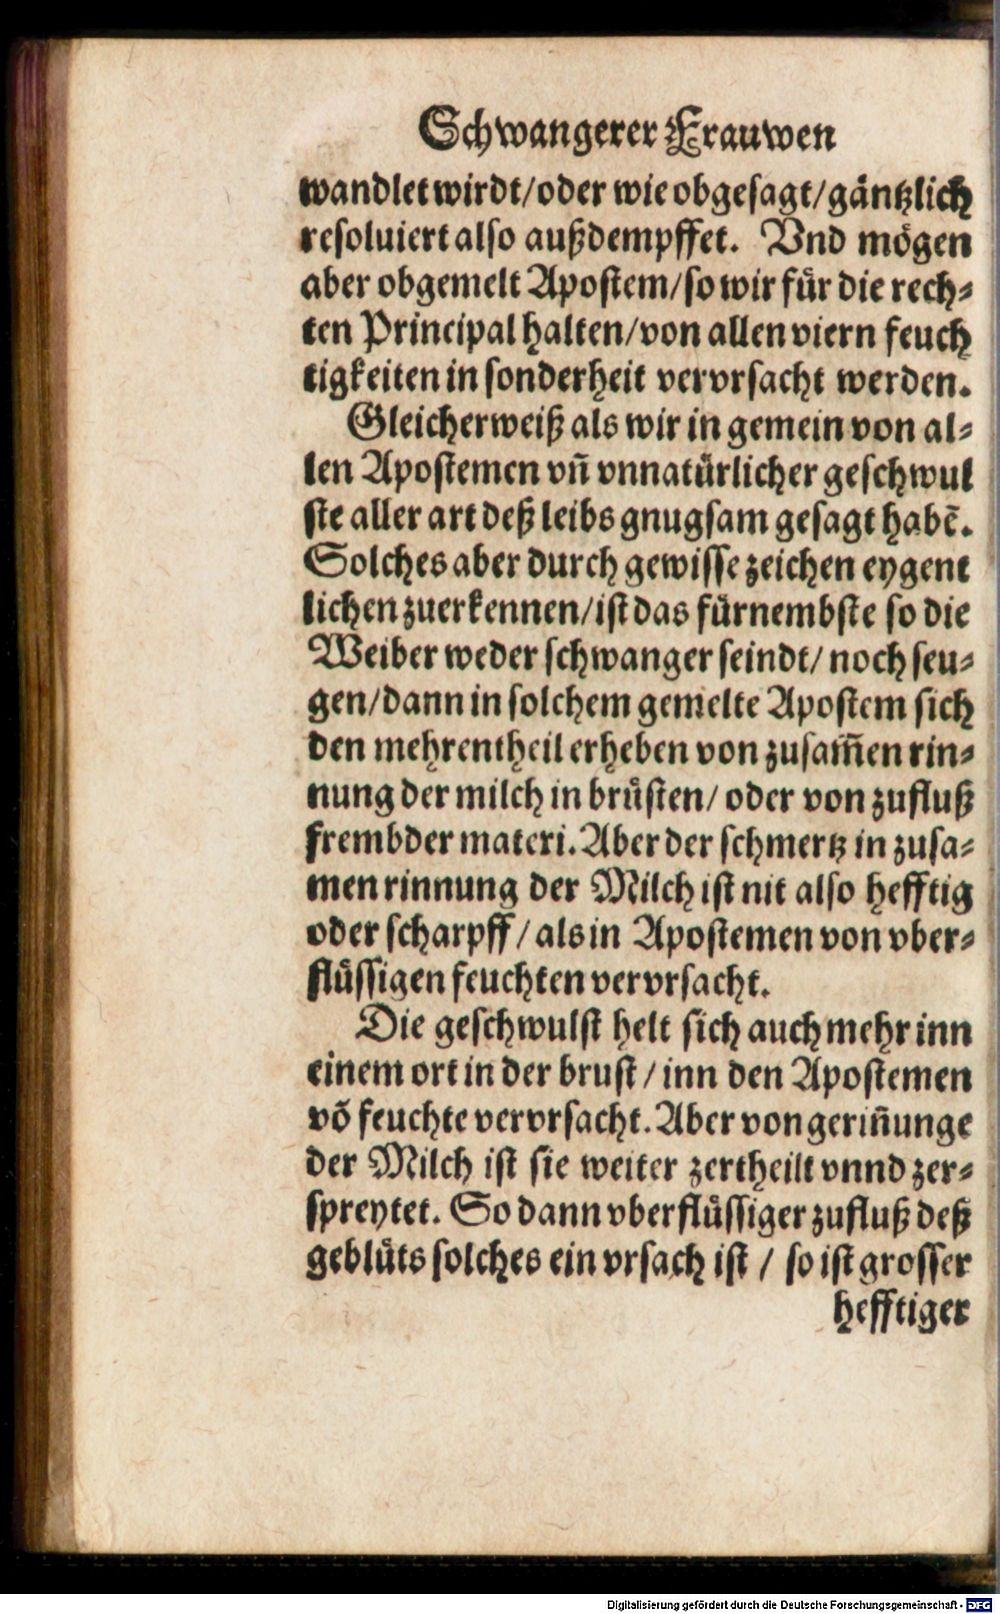 Schwangerer Frauwen
wandlet wirdt/ oder wie obgesagt/ gäntzlich
resoluiert also außdempffet. Vnd mögen
aber obgemelt Apostem/ so wir für die rech-
ten Principal halten/ von allen viern feuch
tigkeiten in sonderheit vervrsacht werden.
Gleicherweiß als wir in gemein von al-
len Apostemen vñ vnnatürlicher geschwul
ste aller art deß leibs gnugsam gesagt habē.
Solches aber durch gewisse zeichen eygent
lichen zuerkennen/ ist das fürnembste so die
Weiber weder schwanger seindt/ noch seu-
gen/ dann in solchem gemelte Apostem sich
den mehrentheil erheben von zusam̃en rin-
nung der milch in brüsten/ oder von zufluß
frembder materi. Aber der schmertz in zusa-
men rinnung der Milch ist nit also hefftig
oder scharpff / als in Apostemen von vber-
flüssigen feuchten vervrsacht.
Die geschwulst helt sich auch mehr inn
einem ort in der brust / inn den Apostemen
võ feuchte vervrsacht. Aber von geriñunge
der Milch ist sie weiter zertheilt vnnd zer-
spreytet. So dann vberflüssiger zufluß deß
geblüts solches ein vrsach ist / so ist grosser
hefftiger
Digitalisierung gefördert durch die Deutsche Forschungsgemeinschaft - DFG